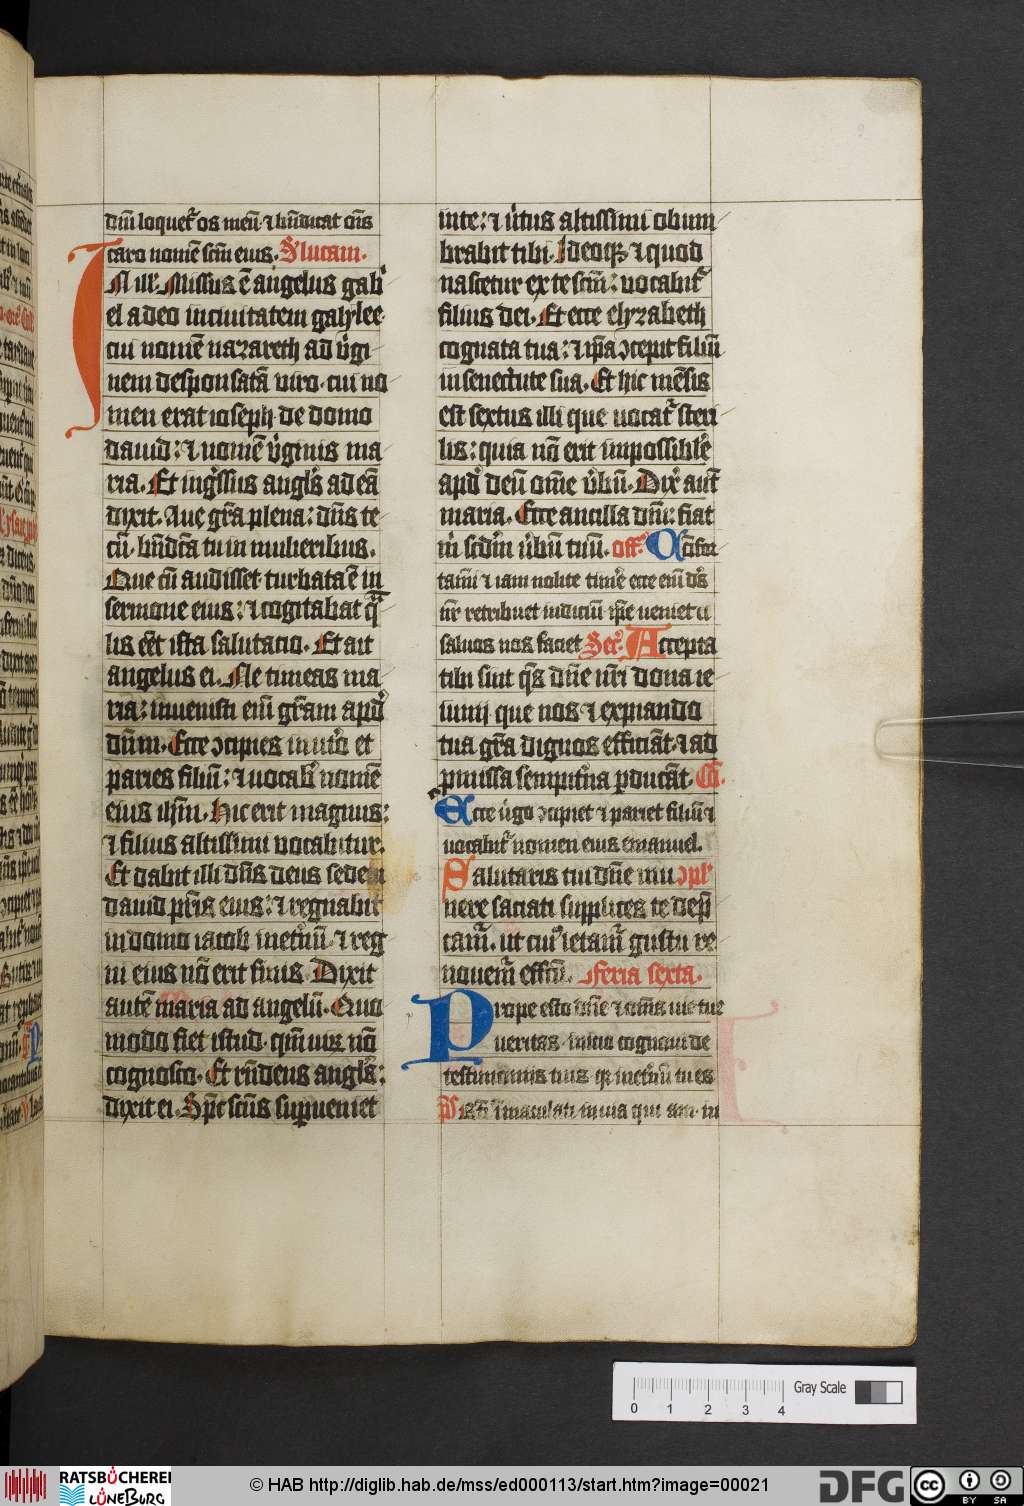 dm̄ loquet᷒ os meū · ⁊ bn̄dicat om̄s
caro nomē scm̄ eius · S. lucam ·
IN illo · Missus ē angelus gabri
el a deo in ciuitatem galylee ·
cui nomē nazareth ad v̓gi
nem desponsatā viro · cui no
men erat ioseph · de domo
dauid : ⁊ nomē v̓ginis ma
ria · Et ingr̄ssus angl̓s ad eā
dixit · Aue gr̄a plena : dn̄s te
cū · bn̄dc̄a tu in mulieribus ·
Que cū audisset · turbata ē in
sermone eius : ⁊ cogitabat q̄
lis eēt ista salutacio · Et ait
angelus ei · Ne timeas ma
ria : inuenisti eni̅ gr̄am apd̓
dūm · Ecce ɔcipies in vt̓o et
paries filiū : ⁊ vocab̓ nomē
eius ih̄m · hic erit magnus :
⁊ filius altissimi vocabitur ·
Et dabit illi dn̄s deus sedem
dauid pr̄is eius : ⁊ regnabit
in domo iacob inet̓nū · ⁊ reg
ni eius nō erit finis · Dixit
autē maria ad angelū · Quo
modo fiet istud · qm̄ uir̄ nō
cognosco · Et rn̄dens angl̓s :
dixit ei · Sp̄c scūs superueniet
inte : ⁊ v̓tus altissimi obum
brabit tibi · Ideoqꝫ ⁊ quod
nascetur ex te scm̄ : vocabit᷒
filius dei · Et ecce elyzabeth
cognata tua : ⁊ ip̄a ɔcepit filiū
in senect̓ute sua · Et hic mēsis
est sextus illi que vocat᷒ steri
lis : quia nō erit impossibile
apd̓ deū om̄e v̓bū · Dix̓ aut̄
maria · Ecce ancilla dn̄i : fiat
m̓ scdm̄ v̓bū tuū · off. Confor
tamī ⁊ iam nolite tim̓e ecce enī ds̄
nr̄ retribuet iudiciū ip̄e ueniet ⁊
saluos nos faciet Sec. Accepta
tibi sint qs̄ dn̄e nr̄i dona ie
iunij · que nos ⁊ expiando
tua gr̄a dignos efficiāt · ⁊ ad
pmissa sempit̓na pducāt · Cō.
Ecce v̓go ɔcipiet ⁊ pariet filiū ⁊
vocabit᷒ nomen eius emanuel.
Salutaris tui dn̄e mu ɔpl̄
nere saciati supplices te dep̄
cam᷒ · ut cui᷒ letam᷒ gustu re
nouem᷒ effcū · Feria sexta ·
Prope esto dn̄e ⁊ om̄s vie tue
veritas · inicio cognoui de
testimoniis tuis · qꝛ inet̓nū tu es
ps̄ Bt̄i īmaculati in uia qui am · in
Gray Scale
0 1 2 3 4
RATSBÜCHEREI
LÜNEBURG
© HAB http://diglib.hab.de/mss/ed000113/start.htm?image=00021
DFG
cc BY SA